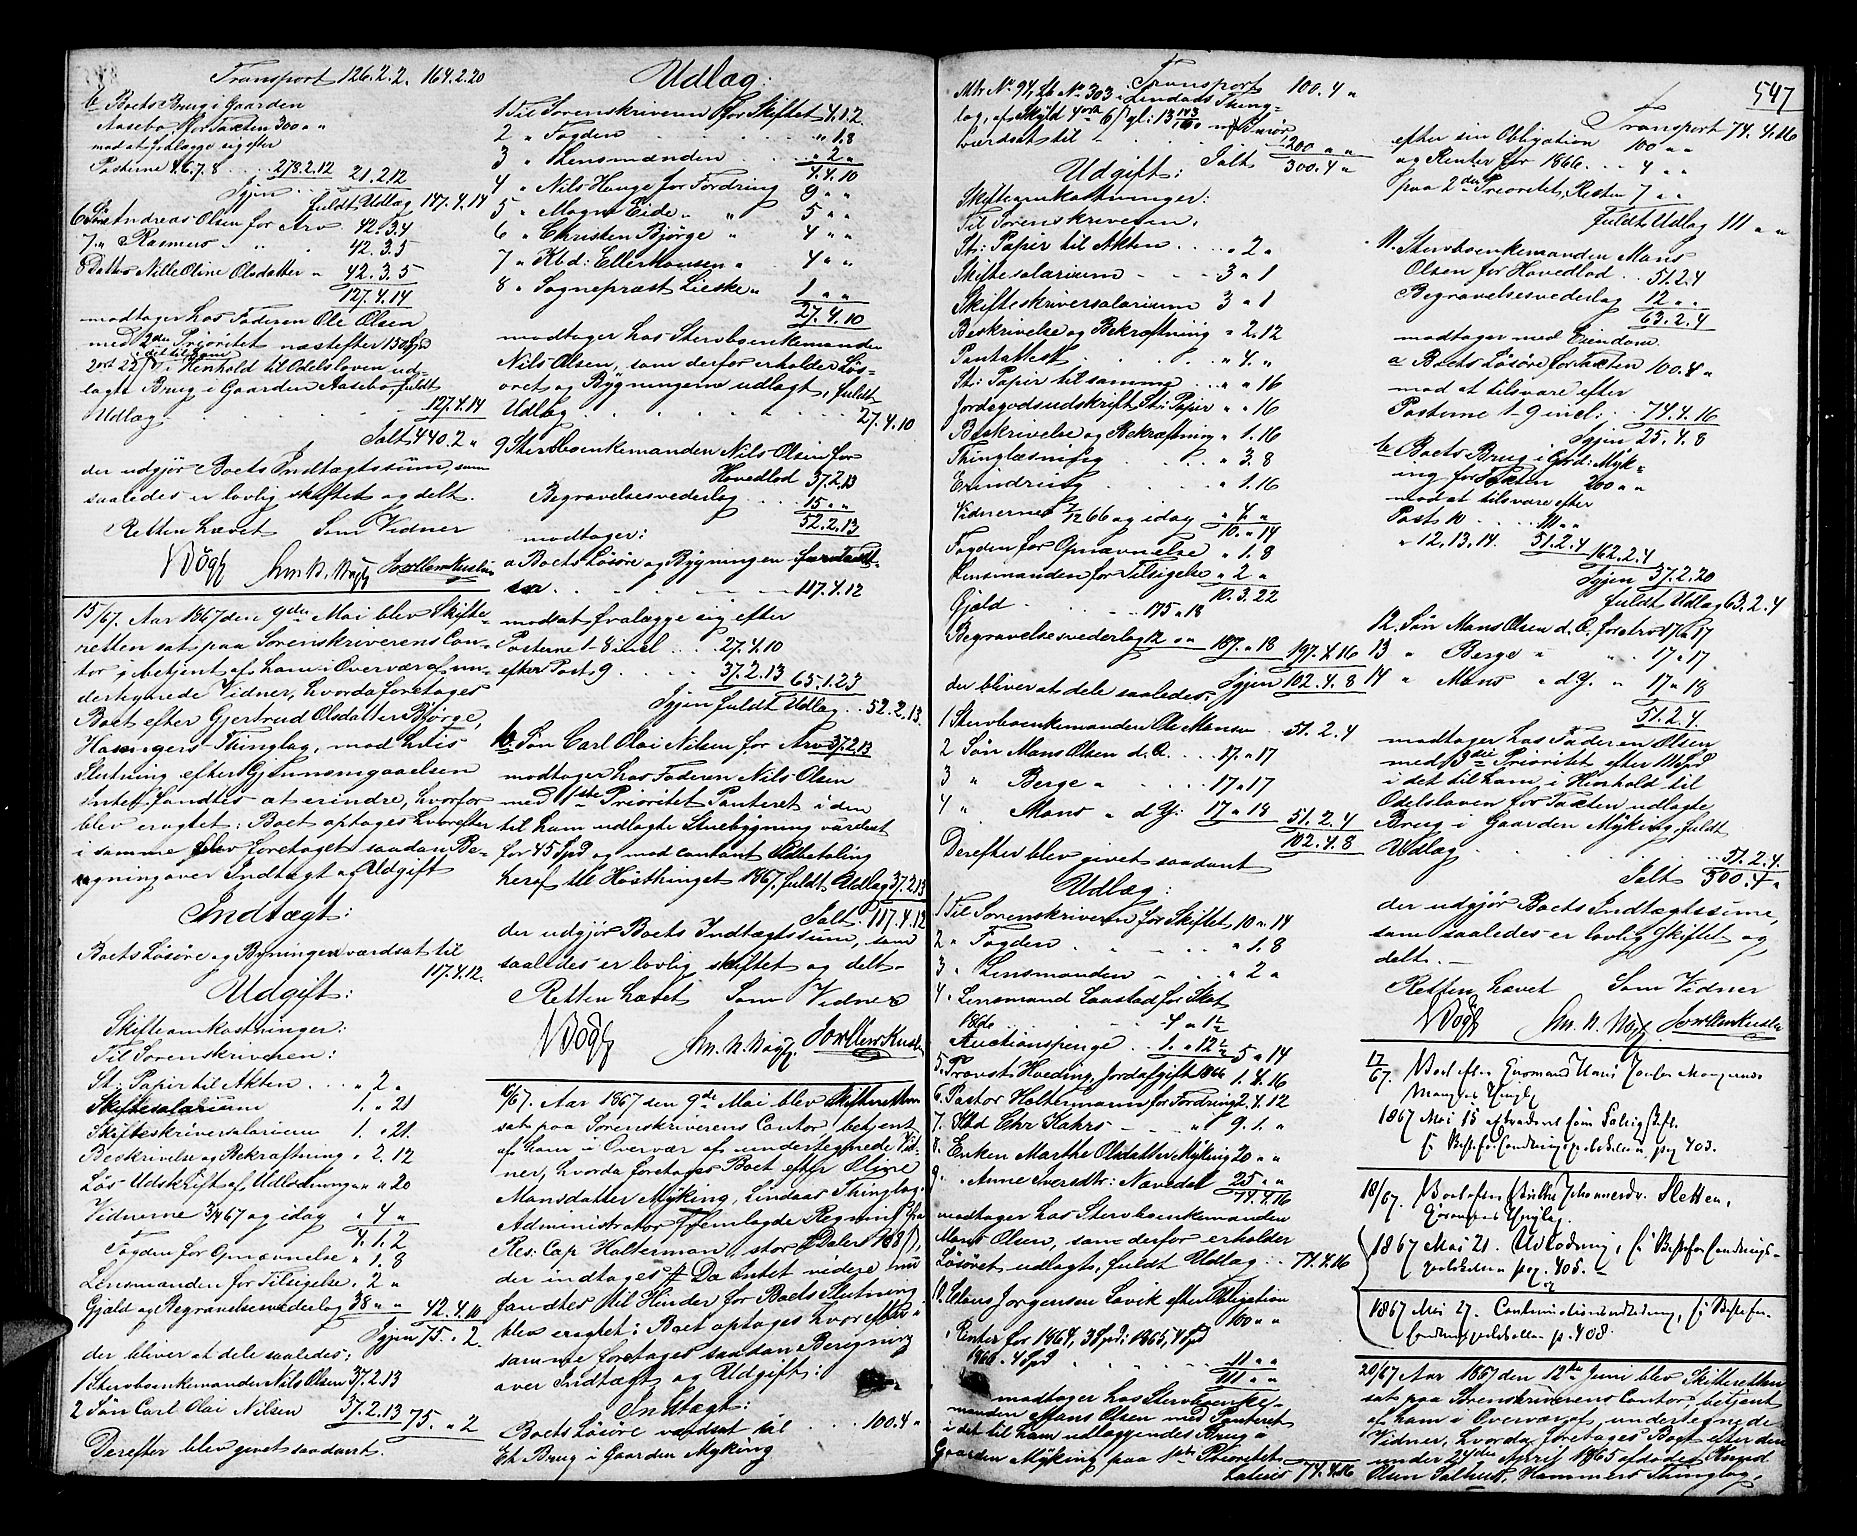 Transport 126.2.2. 164.2.20
b Boets Brug i Gaarden
Aasebø for Taxten 300 " "
mod at fralægge sig efter
Posterne 4.6.7.8 278.2.12 21.2.12
Igjen fuldt Udlag 147.4.14
6 Søn Andreas Olsen for Arv 42.3.4
7 " Rasmus " " 42.3.5
8 Datter Nille Oline Olsdatter " 42.3.5
127.4.14
modtager hos Faderen Ole Olsen
med 2den Prioritet næstefter 150 Spd
2 ort 22 s i det til ham i Henhold til Odelsloven ud-
lagte Brug i Gaarden Aasebø fuldt
Udlag 127.4.14
Ialt 440.2 "
der udgjør Boets Indtægtssum, som
saaledes er lovlig skiftet og delt.
Retten hævet Som Vidner
15/67. Aar 1867 den 9de Mai blev Skifte-
retten sat paa Sorenskriverens Con-
tor, betjent af ham i Overvær af un-
dertegnede Vidner, hvorda foretages
Boet efter Gjertrud Olsdatter Bjørge,
Hammers Thinglag, mod hvis
Slutning efter Gjennemgaaelsen
Intet fandtes at erindre, hvorfor
blev eragtet: Boet optages hvorefter
i samme blev foretaget saadan Be-
regning over Indtægt og Udgift
Indtægt:
Boets Løsøre og Bygningen værdsat til
117.4.12.
Udgift:
Skifteomkostninger:
Til Sorenskriveren:
St: Papir til Akten " 2 "
Skiftesalarium 1. " 21
Skifteskriversalarium 1. " 21.
Beskrivelse og Bekræftning " 2.12
Løs Udskrift af Udlodningen " " 20
Vidnerne 3/4 67 og idag " 4 "
4.1.2
Fogden for Opnævnelse " 1.8
Lensmanden for Tilsigelse " 2 "
Gjæld og Begravelsesvederlag 38 " " 42.4.10
Igjen 75 " 2.
der bliver at dele saaledes;
1 Stervboenkemanden Nils Olsen 37.2.13
2 Søn Carl Olai Nilsen 37.2.13 75 " 2
Derefter blev givet saadant.
Udlæg:
1 Til Sorenskriveren for Skiftet 4.1.2
2 " Fogden " 1.8
3 " Lensmanden " 2 "
4.4.10
4 " Nils Hauge for Fordring 9 " "
5 " Mogns Eide " " 5 " "
6 " Christen Bjørge " 4 " "
7 " Kbd: Ellerhousen " 4 " "
8 " Sognepræst Lieske " 1 " "
27.4.10
modtager hos Stervboenkemanden
Nils Olsen, som derfor erholder Løs-
øret og Bygningerne udlagt, fuldt
Udlag 27.4.10
9 Stervboenkemanden Nils Olsen for
Hovedlod 37.2.13
Begravelsesvederlag 15 " "
52.2.13
modtager:
a Boets Løsøre og Bygningen
117.4.12
modsat fralægge sig efter
Posterne 1-8 incl 27.4.10
efter Post 9 37.2.13 65.1.23
Igjen fuldt Udlag 52.2.13.
10. Søn Carl Olai Nilsen for Arv 37.2.13
modtager hos Faderen Nils Olsen
med 1ste Prioritet Panteret i den
til ham udlagte Stuebygning værdsat
for 45 Spd og mod contant Udbetaling
heraf til Høstthinget 1867, fuldt Udlag 37.2.13
Ialt 117.4.12
der udgjør Boets Indtægtssum, som
saaledes er lovlig skiftet og delt.
Retten hævet Som Vidner
16/67. Aar 1867 den 9de Mai blev Skifteretten
sat paa Sorenskriverens Contor, betjent
af ham i Overvær af undertegnede Vid-
ner, hvorda foretages Boet efter Oline
Mansdatter Myking, Lindaas Thinglag.
Administrator fremlagde Regning fra
Res. Cap Halterman, stor 2 Daler 108 s,
der indtages Da Intet videre nu
fandtes til Hinder for Boets Slutning
blev eragtet: Boet optages hvorefter i
samme foretages saadan Beregning
over Indtægt og Udgift:
Indtægt:
Boets Løsøre værdsat til 100.4 "
Et Brug i Gaarden Myking
Transport 100.4 "
Mtr No 94, Lb No 303 i Lindaas Thing-
lag, af Skyld 4 ort 6 s gl: 13 143/160
værdsat til 200 " "
Ialt 300.4 "
Udgift:
Skifteomkostninger:
Til Sorenskriveren:
St: Papir til Akten " 2 "
Skiftesalarium 3 " 1
Skifteskriversalarium 3 " 1
Beskrivelse og Bekræftning " 2.12
Pantattest " 4 "
St: Papir til samme " " 16
Jordegodsudskrift St: Papir " " 16
Beskrivelse og Bekræftning " 1.16
Thinglæsning " 3.8
Erindring " 1.16
Vidnerne 7/12 66 og idag " 4 "
10. " 14
Fogden for Opnævnelse " 1.8
Lensmanden for Tilsigelse " 2 "
10.3.22
Gjæld 175 " 18
Begravelsesvederlag 12 " " 187 " 18 197.4.16
der bliver at dele saaledes: Igjen 102.4.8
1 Stervboenkemanden Ole Mansen 51.2.4
2 Søn Mans Olsen d. Æ. 17 " 17
3 " Berge " 17 " 17
4 " Mans " d Y. 17 " 18 51.2.4
102.4.8
Derefter blev givet saadant
Udlæg:
1 Til Sorenskriveren for Skiftet 10 " 14
2 " Fogden " 1.8
3 " Lensmanden " 2 "
4 " Lensmand Laastad for Skat
1866 4 " 1 1/2
Auctionspenge 1. " 12 1/2 5 " 14
5. Provst Hveding, Jordafgift 1866 1.4.16
6. Pastor Haltermann for Fordring 2.4.12
7. Kbd Chr Kahrs " 9.1. "
8. Enken Marthe Olsdatter Myking 20 " "
9. " Anne Iversdtr: Nævedal 25 " "
74.4.16
modtager hos Stervboenkemanden
Mans Olsen, som derfor erholder
Løsøret udlagt, fuldt Udlag 74.4.16
10. Claus Jørgensen Lavik efter Obligation
100 " "
" Renter for 1864, 3 Spd; 1865, 4 Spd
1866. 4 Spd 11 " "
111 " "
modtager hos Stervboenke-
manden Mans Olsen med Panteret
i det til ham udlæggendes Brug i
Gaarden Myking paa 1ste Prioritet
Lateris 74.4.16
547
Transport 74.4.16
efter sin Obligation 100 " "
og Renter for 1866 4 " "
paa 2den Prioritet, Resten 7 " "
fuldt Udlag 111 " "
11. Stervboenkemanden Mans
Olsen for Hovedlod 51.2.4
Begravelsesvederlag 12 " "
63.2.4
modtager med Eiendom
a Boets Løsøre for Taxten 100.4 "
mod at tilsvare efter
Posterne 1-9 incl: 74.4.16
Igjen 25.4.8
b Boets Brug i Grd: Myk-
ing for Taxten 200 " "
mod at tilsvare efter
Post 10 111 " "
" 12, 13, 14. 51.2.4 162.2.4
Igjen 37.2.20
fuldt Udlag 63.2.4
12. Søn Mans Olsen d. Æ. for Arv 17 " 17
13 " Berge " " 17 " 17
14 " Mans " d Y. " 17 " 18
51.2.4.
modtager hos Faderen Olsen
med 3die Prioritet efter 111 Spd
i det til ham i Henhold til
Odelsloven for Taxten udlagte
Brug i Gaarden Myking, fuldt
Udlag 51.2.4
Ialt 300.4 "
der udgjør Boets Indtægtssum,
som saaledes er lovlig skiftet og
delt.
Retten hævet Som Vidner
17/67. Boet efter Hans
1867 Mai 15
pag 403.
18/67. Boet efter Birthe Johannesdr. Sletten,
1867 Mai 21. Udlodning,
pag. 405.
1867 Mai 27.
p. 408.
20/67 Aar 1867 den 12te Juni blev Skifteretten
sat paa Sorenskriverens Contor, betjent
af ham i Overvær af undertegnede
Vidner, hvorda foretages Boet efter den
under 24de April 1865 afdøde Knud
Olsen Salhus, Hammers Thinglag,